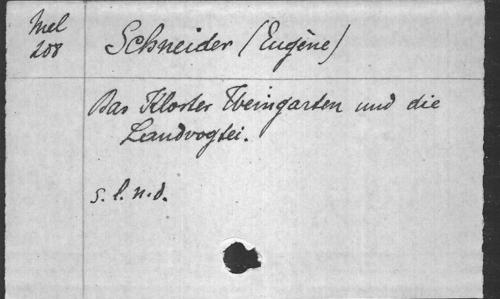 Mel
208
Schneider (Eugène)
Das Kloster Weingarten und die
Landvogtei.
s.l.n.d.